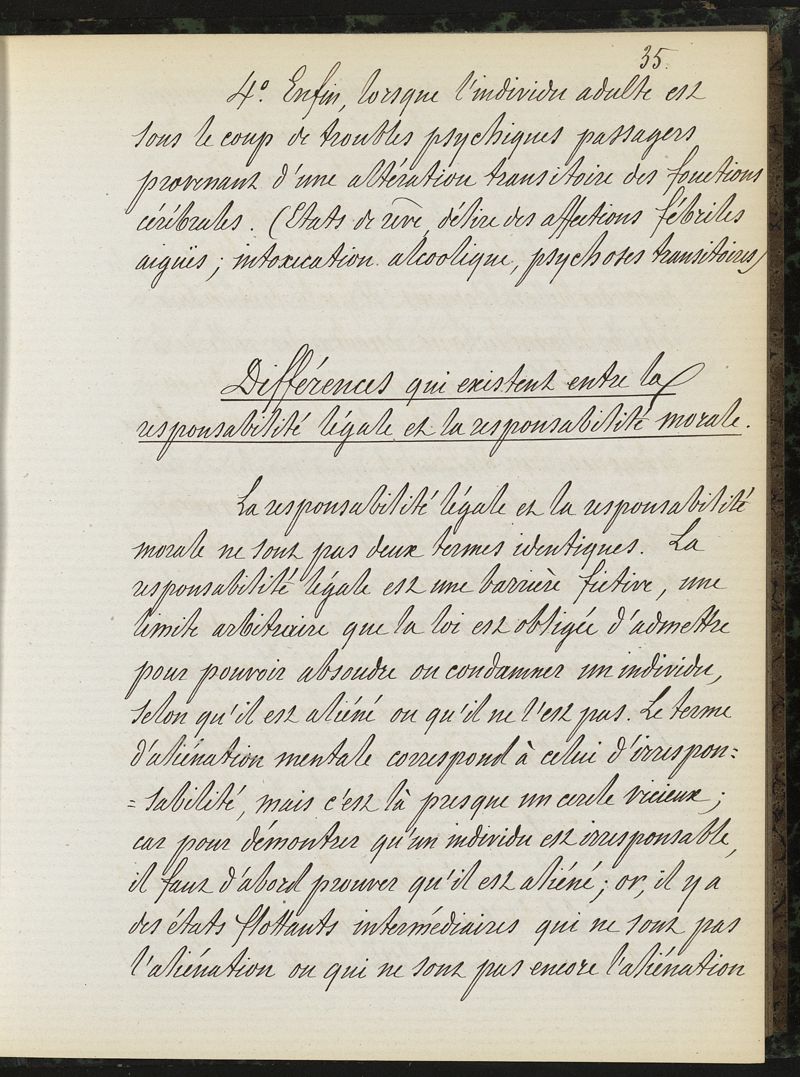 35.
4º. Enfin, lorsque l'individu adulte est
sous le coup de troubles psychiques passagers
provenant d'une altération transitoire des fonctions
cérébrales. (Etats de rêve, délire des affections fébriles
aigües; intoxication alcoolique, psychoses transitoires)
Différences qui existent entre la
responsabilité légale et la responsabilité morale.
La responsabilité légale et la responsabilité
morale ne sont pas deux termes identiques. La
responsabilité légale est une barrière fictive, une
limite arbitraire que la loi est obligée d'admettre
pour pouvoir absoudre ou condamner un individu,
selon qu'il est aliéné ou qu'il ne l'est pas. Le terme
d'aliénation mentale correspond à celui d'irrespon=
=sabilité, mais c'est là presque un cercle vicieux;
car pour démontrer qu'un individu est irresponsable,
il faut d'abord prouver qu'il est aliéné; or, il y a
des états flottants intermédiaires qui ne sont pas
l'aliénation ou qui ne sont pas encore l'aliénation